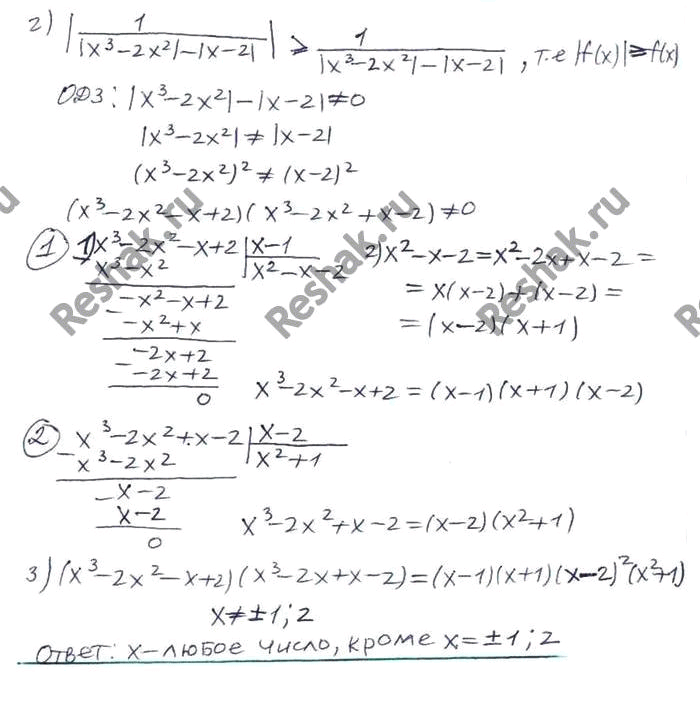 2) |1/(|x³-2x²|-|x-2|)| ≥ 1/(|x³-2x²|-|x-2|), т.е |f(x)|≥f(x)
ОДЗ: |x³-2x²|-|x-2|≠0
|x³-2x²|≠|x-2|
(x³-2x²)²≠(x-2)²
(x³-2x²-x+2)(x³-2x²+x-2)≠0
① 1) x³-2x²-x+2 | x-1 2) x²-x-2=x²-2x+x-2=
x³-x² | x²-x-2
=x(x-2)+(x-2)=
-x²-x+2
-x²+x =(x-2)(x+1)
-2x+2
-2x+2
0 x³-2x²-x+2=(x-1)(x+1)(x-2)
② x³-2x²+x-2 | x-2
x³-2x² | x²+1
x-2
x-2
0 x³-2x²+x-2=(x-2)(x²+1)
3) (x³-2x²-x+2)(x³-2x+x-2)=(x-1)(x+1)(x-2)²(x²+1)
x≠±1;2
Ответ: x-любое число, кроме x=±1;2
Reshak.ru
Reshak.ru
Reshak.ru